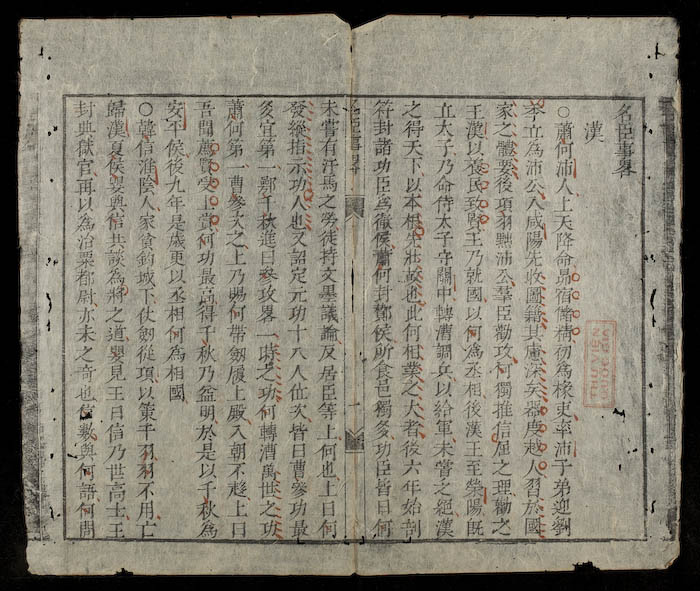 名臣事畧
漢
○蕭何沛人上天降命昴宿儲精初為椽吏率沛子弟迎劉
季立為沛公入咸陽先收圖籍其慮深矣器度越人習於國
家之體要後項羽黜沛公羣臣勸攻何獨推信屈之理勸之
王漢以養民致賢王乃就國以何為丞相後漢王至榮陽既
立太子乃命侍太子守關中轉漕調兵以給軍未嘗乏絕漢
之得天下以本根先壯故也此何相業之大者後六年始剖
符封諸功臣為徹侯蕭何封酇侯所食邑獨多功臣皆曰何
名臣事畧
一
未嘗有汗馬之勞徒持文墨議論反居臣等上何也上曰何
發縱指示功人也又詔定元功十八人位次皆曰曹參功最
多宜第一鄂千秋進曰參攻畧一時之功何轉漕萬世之功
蕭何第一曹參次之上乃賜何帶劔履上殿入朝不趨上曰
吾聞薦賢受上賞何功最高得千秋乃益明於是以千秋為
安平侯後九年是歲更以丞相何為相國
○韓信淮陰人家貧釣城下仗劔從項以策干羽羽不用亡
歸漢夏侯嬰與信共談為將之道嬰見王曰信乃世高士王
封典獄官再以為治粟都尉亦未之奇也信數與何語何問